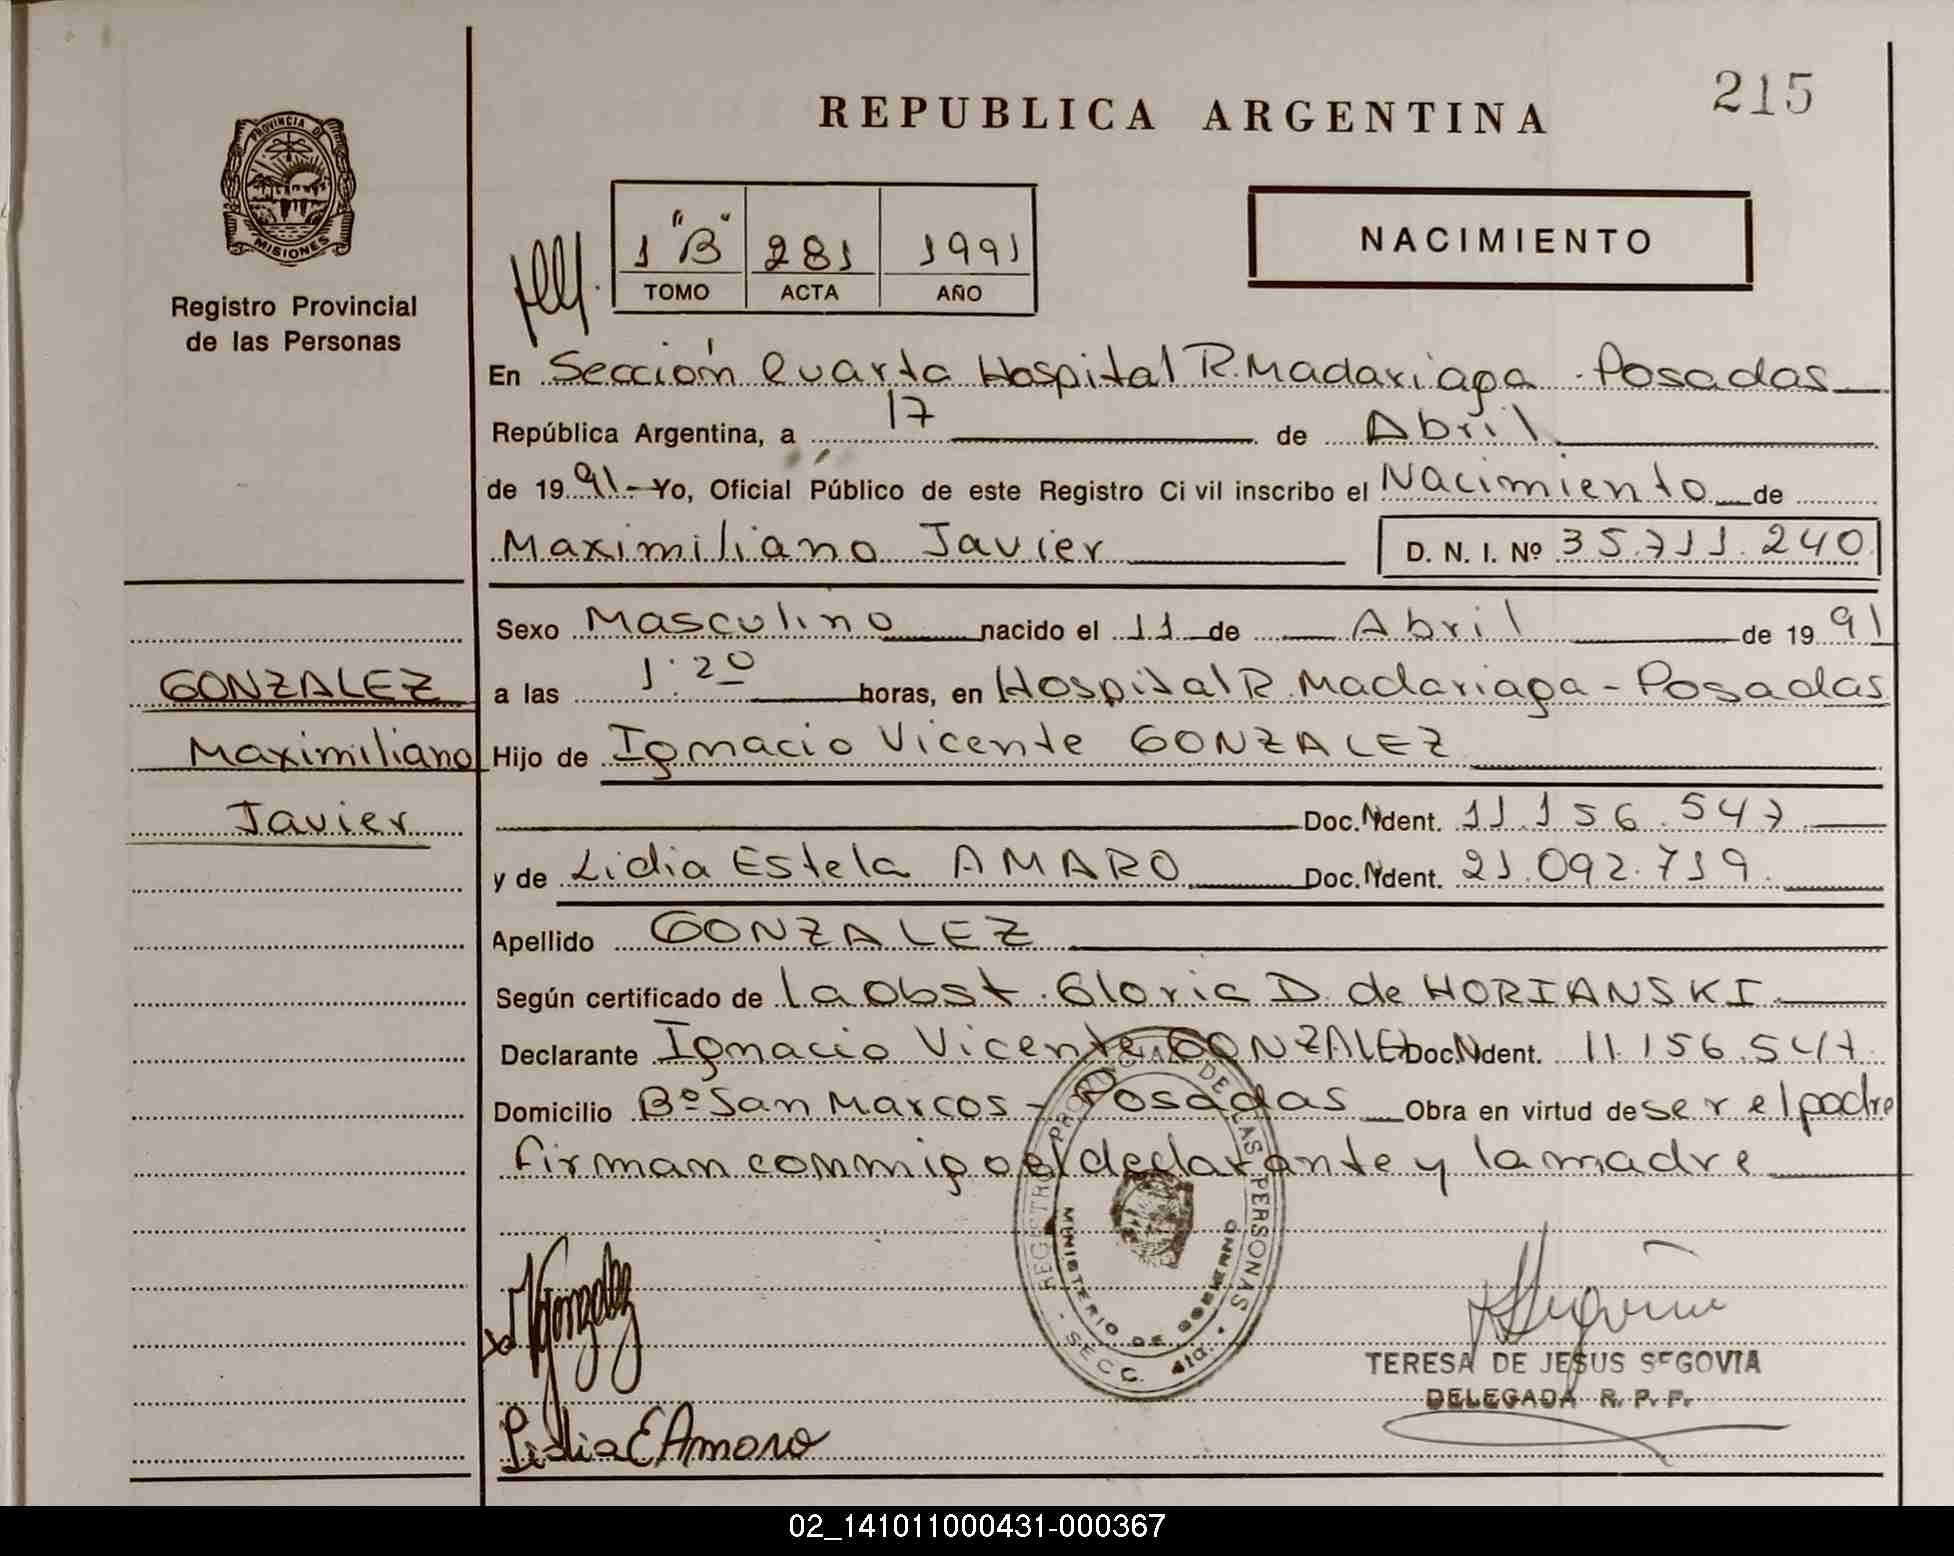 215
REPUBLICA ARGENTINA
PROVINCIA DE
MISIONES
Registro Provincial
de las Personas
1 "B" 281 1991
TOMO ACTA AÑO
NACIMIENTO
En Sección Cuarta Hospital R. Madariaga - Posadas
República Argentina, a 17 de Abril
de 1991 - Yo, Oficial Público de este Registro Civil inscribo el Nacimiento de
Maximiliano Javier D. N. I. Nº 35.711.240
Sexo Masculino nacido el 11 de Abril de 1991
GONZALEZ
a las 1.20 horas, en Hospital R. Madariaga - Posadas
Maximiliano
Hijo de Ignacio Vicente GONZALEZ
Javier
Doc. Ident. 11.156.547
y de Lidia Estela AMARO Doc. Ident. 21.092.719
Apellido GONZALEZ
Según certificado de la Obst. Gloria D. de HORIANSKI
Declarante Ignacio Vicente GONZALEZ Doc. Ident. 11.156.547
Domicilio Bº San Marcos - Posadas Obra en virtud de ser el padre
firman conmigo el declarante y la madre
REGISTRO PROVINCIAL DE LAS PERSONAS
MINISTERIO DE GOBIERNO
- SECC. 4ta. -
Gonzalez
TERESA DE JESUS SEGOVIA
DELEGADA R. P. P.
Lidia E Amaro
02_141011000431-000367